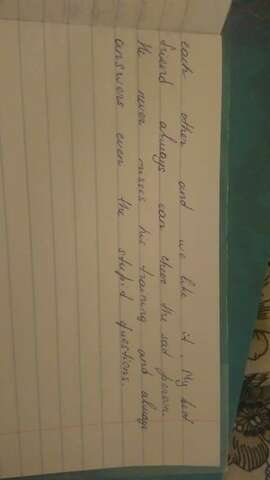 each other and we like it. My best
friend always can cheer the sad person.
He never misses his training and always
answers even the stupid questions.